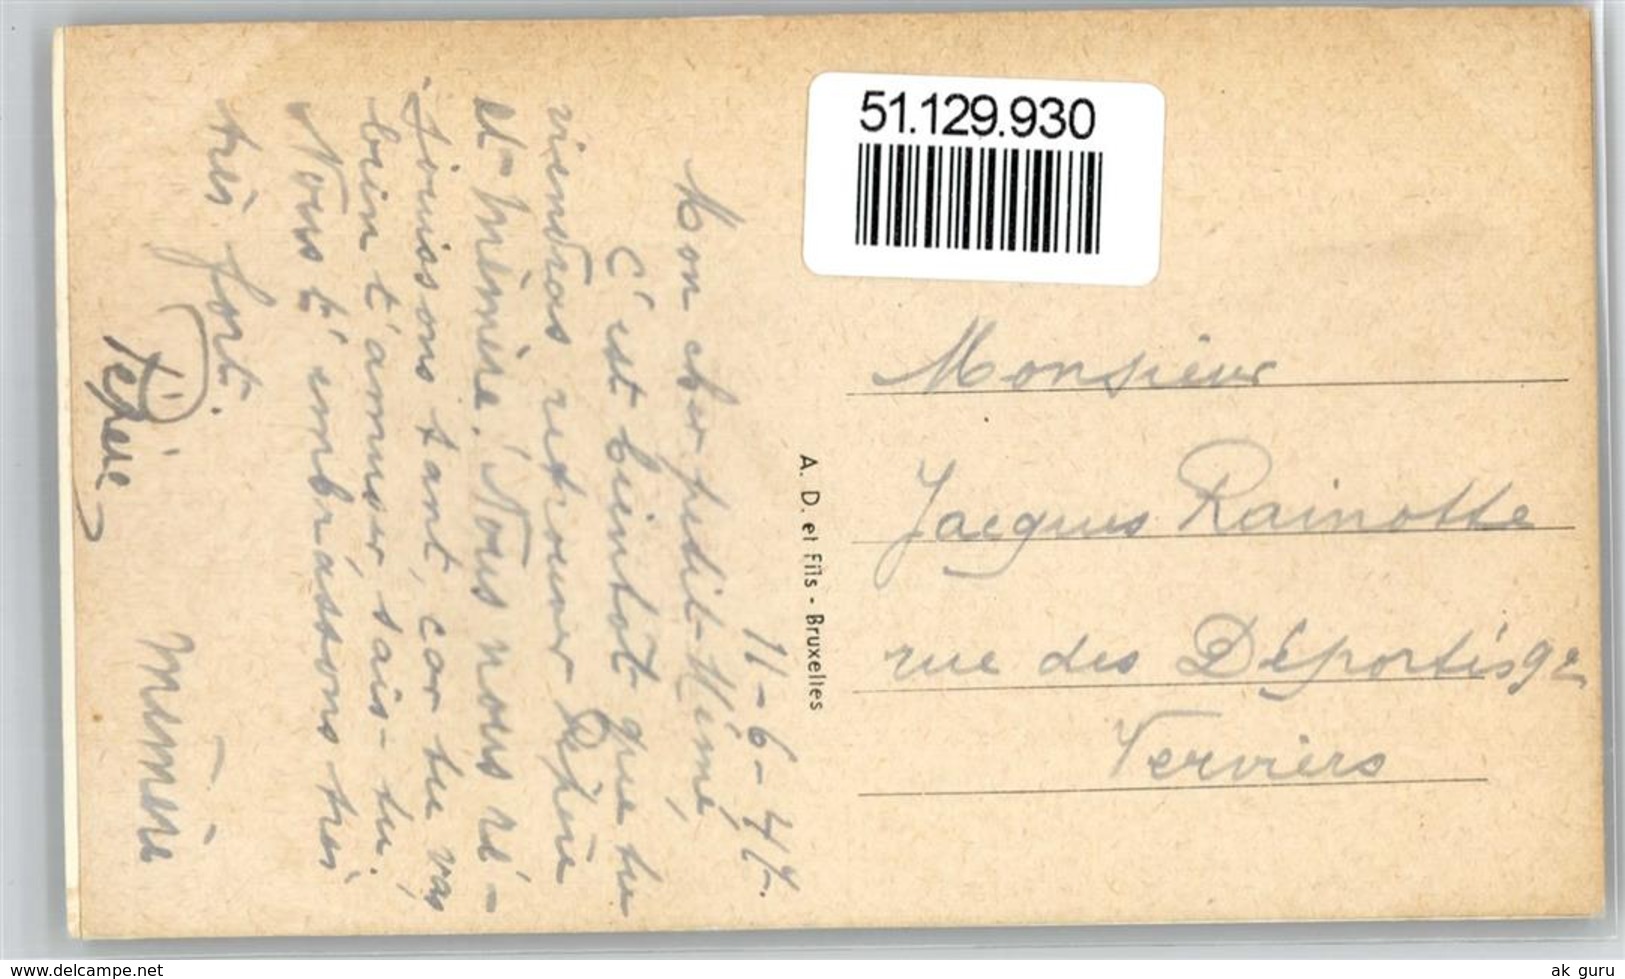 51.129.930
11-6-47.
Mon cher petit Mimé,
C'est bientôt que tu
viendras retrouver Pépère
et Mémère. Nous nous ré-
jouissons tant, car tu vas
bien t'amuser, sais-tu.
Nous t'embrassons très
très fort.
Pépère
Mémère
A. D. et Fils - Bruxelles
Monsieur
Jacques Rainotte
rue des Déportés 92
Verviers
www.delcampe.net
ak_guru